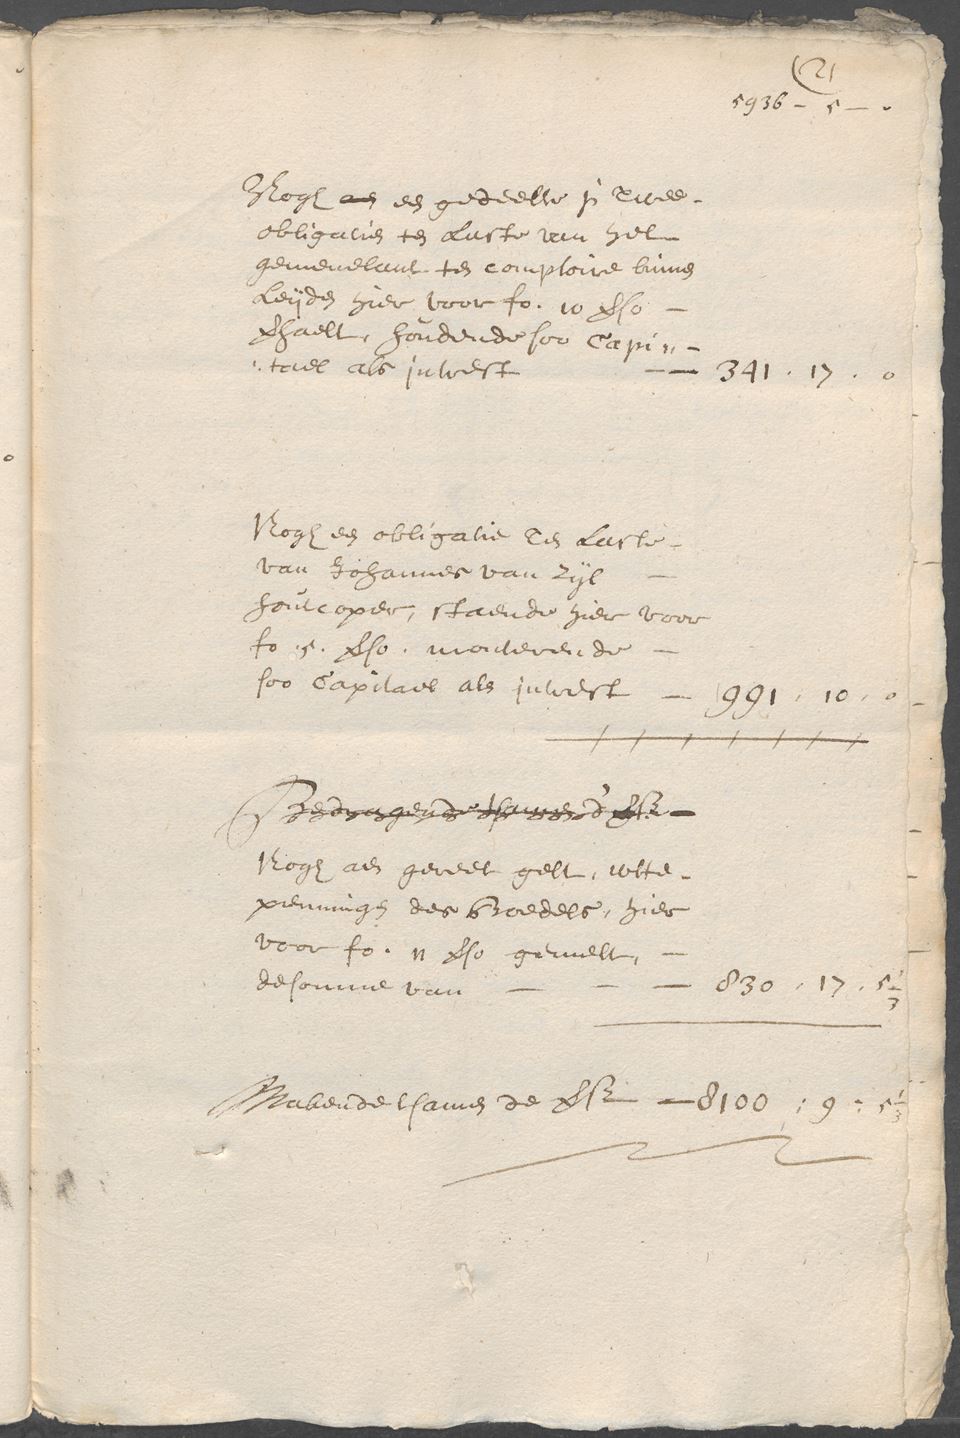 (21
5936 - 5 - 0
Noch een gedeelte in Twee
obligatien ten Laste van het
gemenelant ten comptoire binnen
Leijden hier voor fo. 10 vso
verhaelt, houdende soo Capi-
tael als intrest - 341 . 17 . 0
Noch een obligatie Ten Laste
van Johannes van Zijl
houtcoper, staende hier voor
fo. 5. vso. monterende
soo Capitael als intrest - 991 . 10 . 0
Bedragende tsamen d
Noch aen gereet gelt, utte
penningen des Boedels, hier
voor fo. 11 vso gemelt,
de somme van - - - 830 . 17 . 5 1/3
Makende tsamen de - 8100 : 9 : 5 1/3